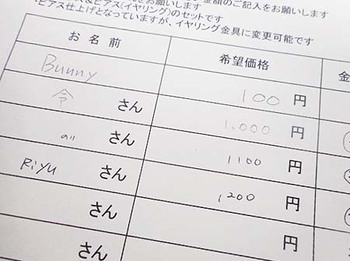 金額のご記入をお願いします
ピアス(イヤリング)のセットです
ピアス仕上げとなっていますが、イヤリング金具に変更可能です
お名前 希望価格 金
Bunny 100 円
令 さん 1,000 円
さん 1100 円
Riyu さん 1,200 円
さん 円
さん